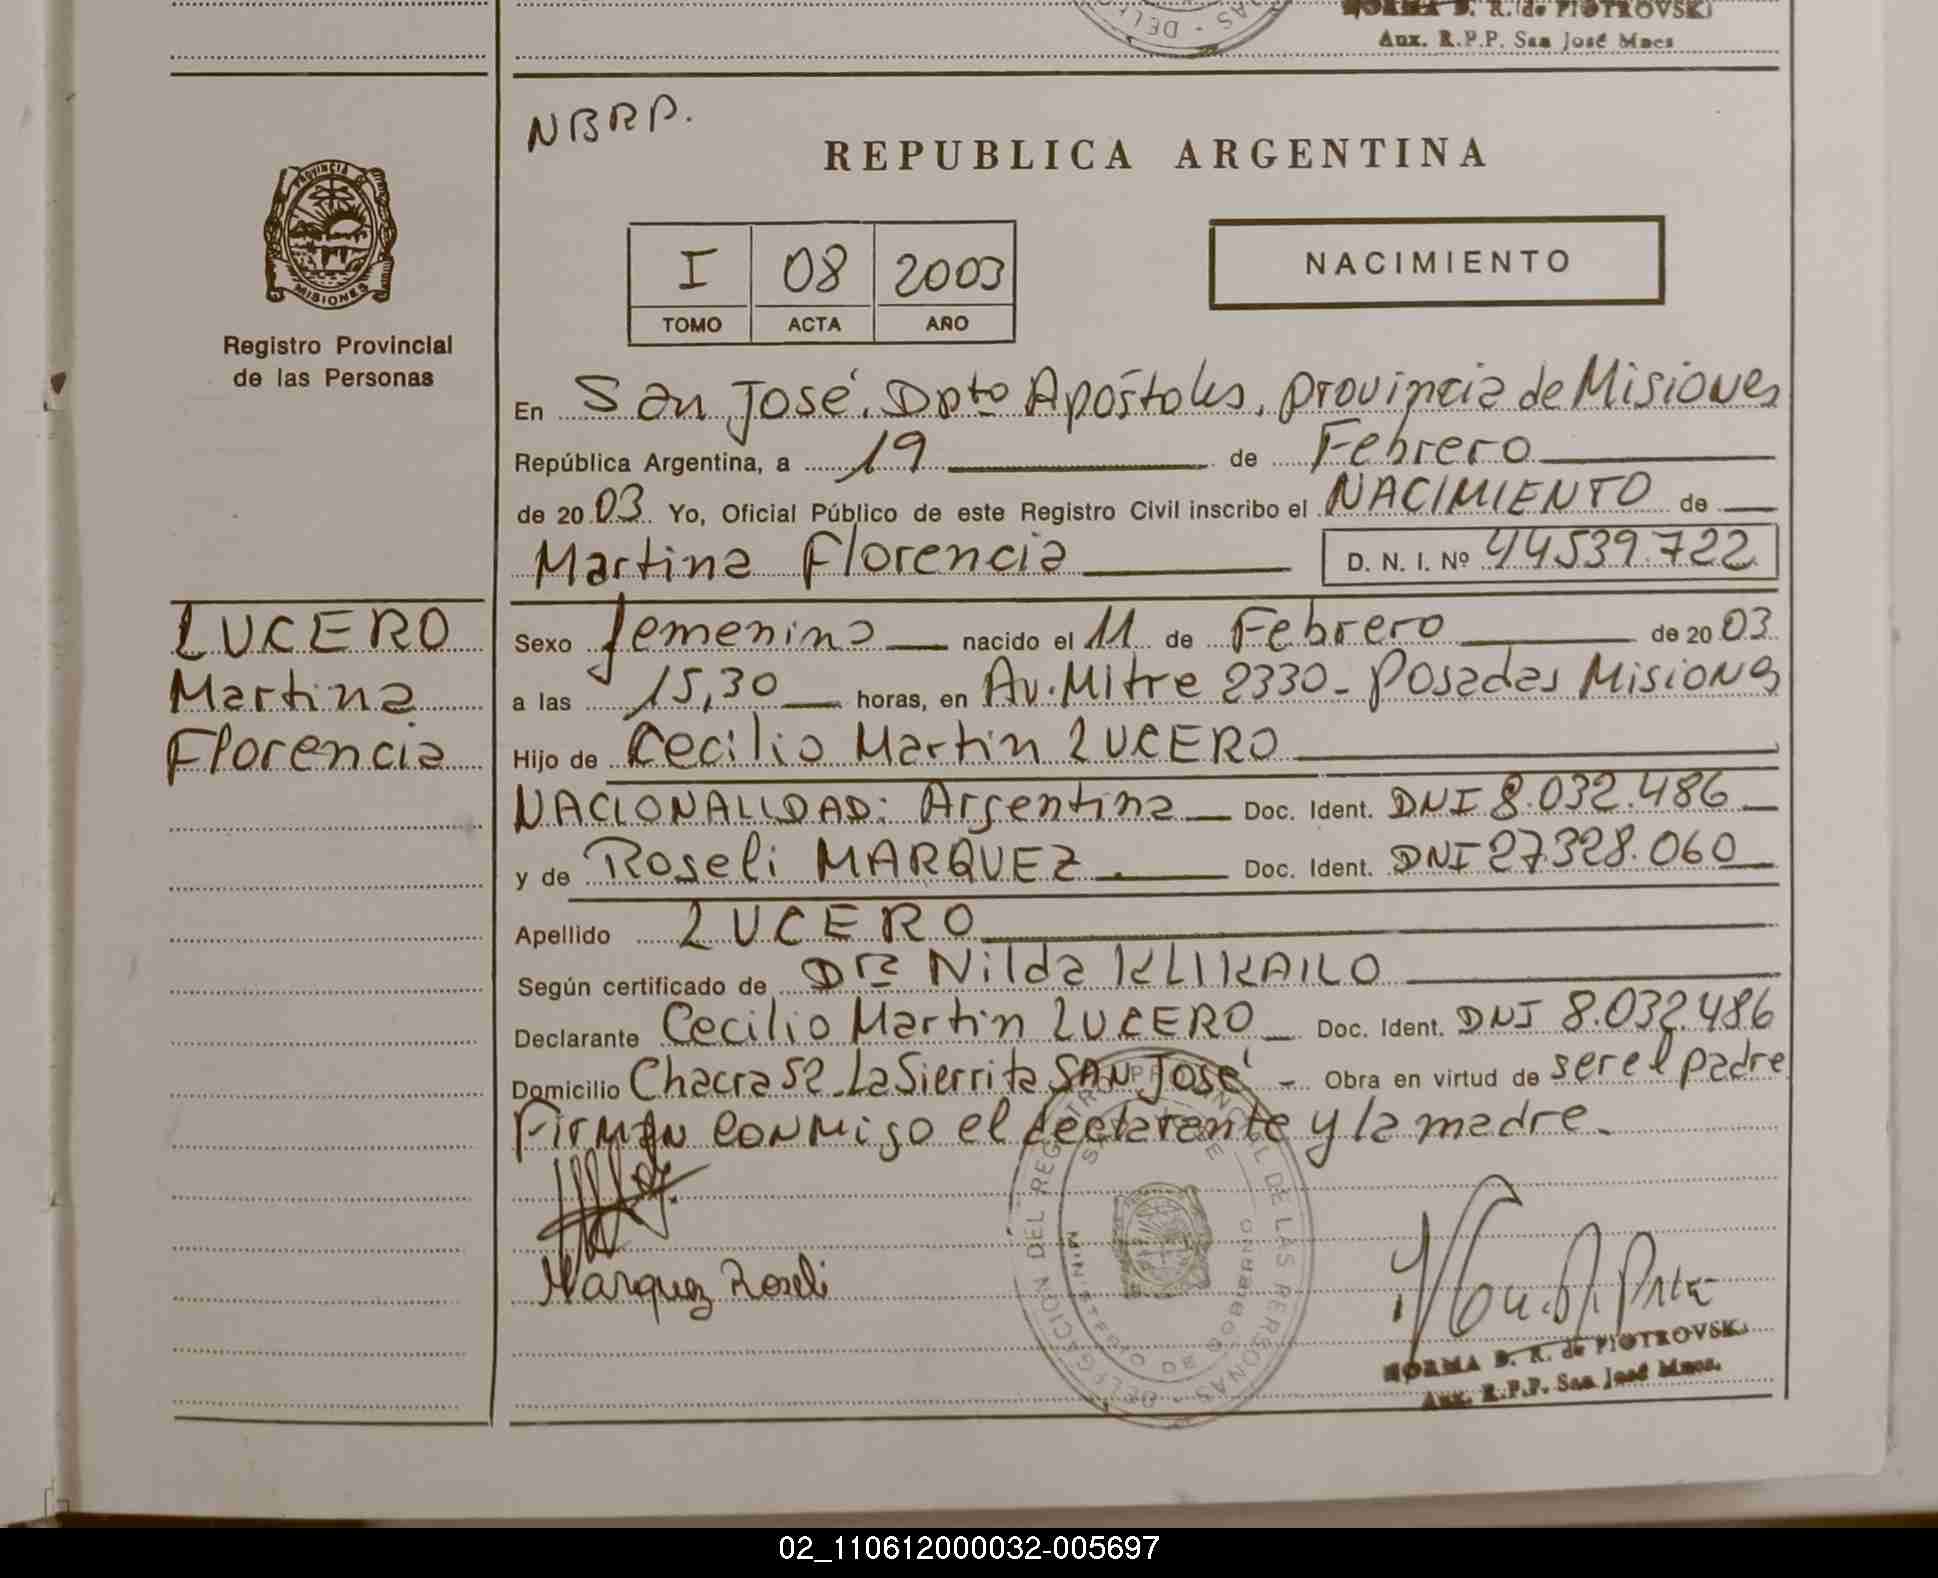 NORMA D. R. de PIOTROVSKI
Aux. R.P.P. San José Mnes
NBRP.
REPUBLICA ARGENTINA
PROVINCIA DE
MISIONES
Registro Provincial
de las Personas
I 08 2003
TOMO ACTA AÑO
NACIMIENTO
En San José, Dpto Apóstoles, provincia de Misiones
República Argentina, a 19 de Febrero
de 2003 Yo, Oficial Público de este Registro Civil inscribo el NACIMIENTO de
Martina Florencia D. N. I. Nº 44539.722
LUCERO
Martina
Florencia
Sexo femenino nacido el 11 de Febrero de 2003
a las 15,30 horas, en Av. Mitre 2330 - Posadas Misiones
Hijo de Cecilio Martin LUCERO
NACIONALIDAD: Argentina Doc. Ident. DNI 8.032.486
y de Roseli MARQUEZ Doc. Ident. DNI 27.328.060
Apellido LUCERO
Según certificado de Dra Nilda KLIKAILO
Declarante Cecilio Martin LUCERO Doc. Ident. DNI 8.032.486
Domicilio Chacra 52 La Sierrita SAN José - Obra en virtud de ser el padre
Firman conmigo el declarante y la madre.
Marquez Roseli
DELEGACION DEL REGISTRO PROVINCIAL DE LAS PERSONAS
NORMA D. R. de PIOTROVSKI
Aux. R.P.P. San José Mnes.
02_110612000032-005697